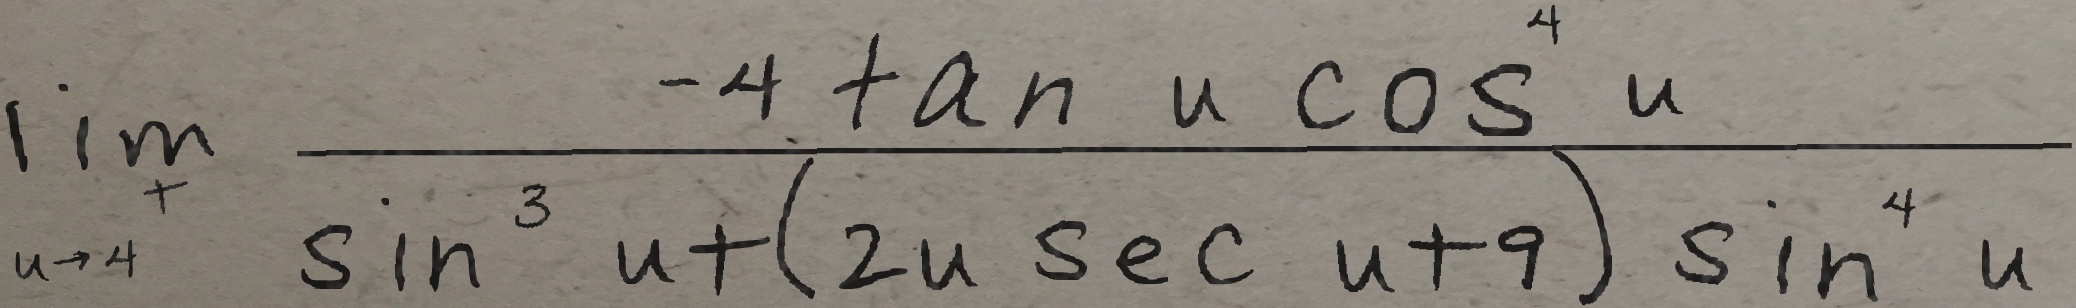 \lim_{u \to 4^+} \frac{-4 \tan u \cos^4 u}{\sin^3 u + (2u \sec u + 9) \sin^4 u}